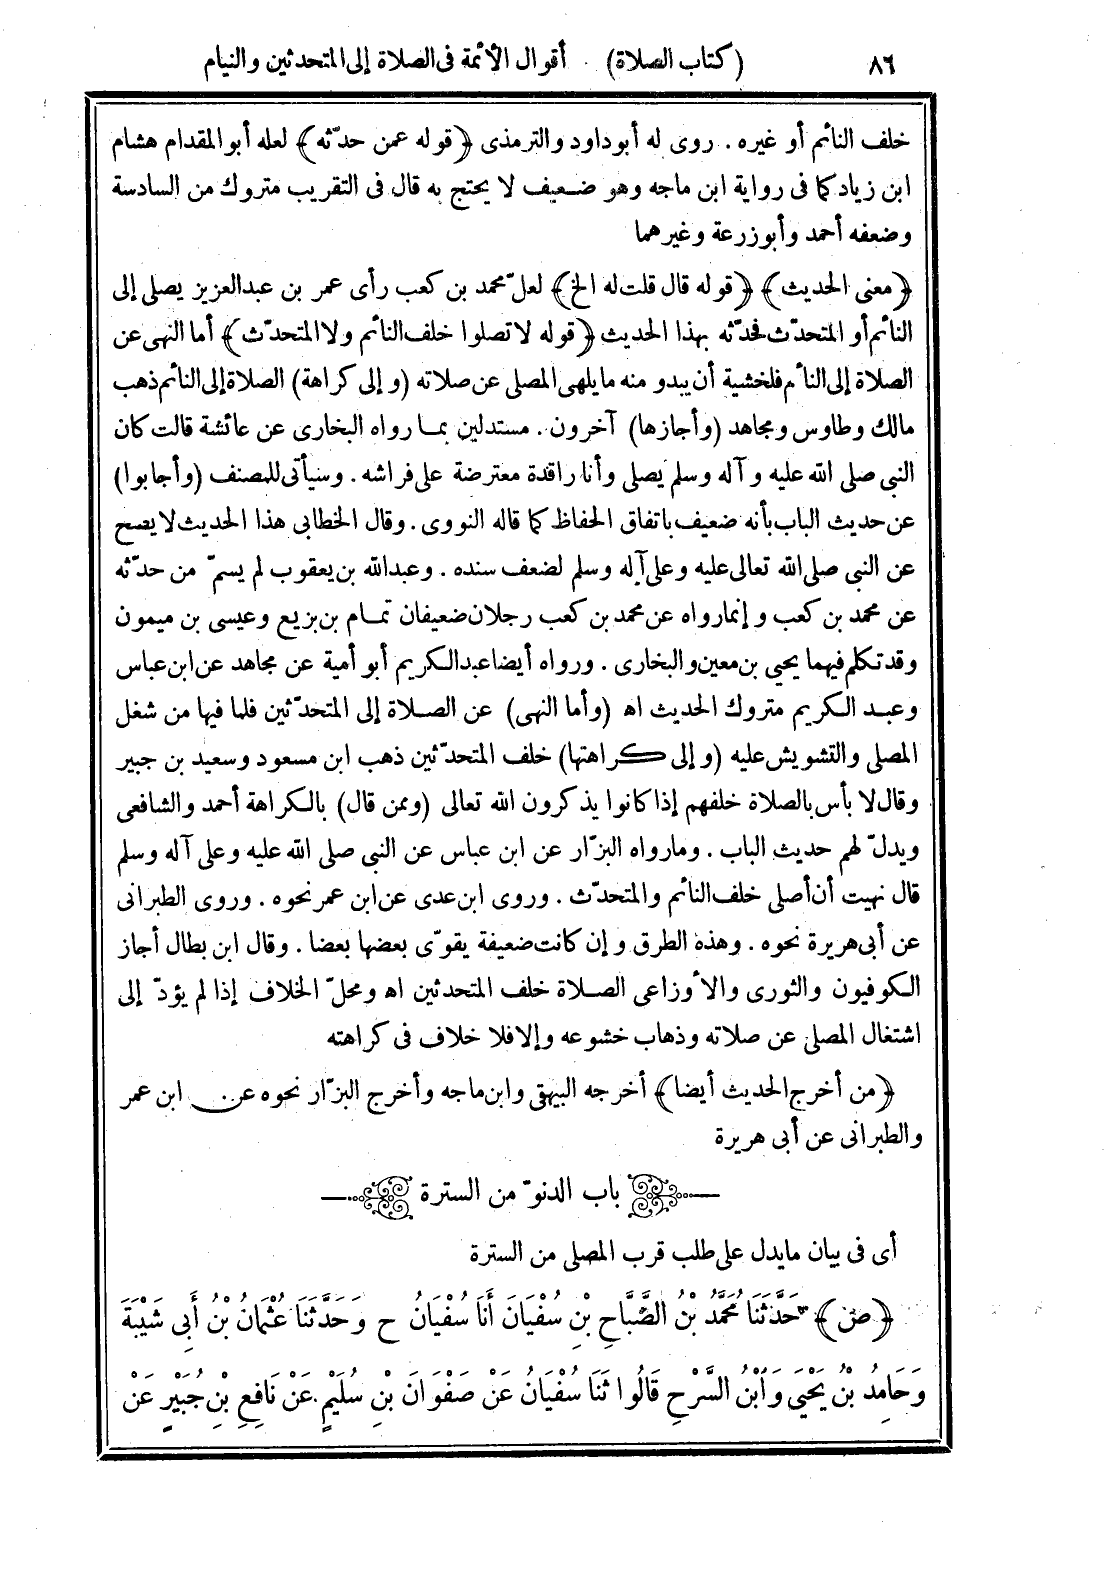 ٨٦ (كتاب الصلاة) أقوال الأئمة فى الصلاة إلى المتحدثين والنيام
خلف النائم أو غيره . روى له أبوداود والترمذى ﴿قوله عمن حدّثه﴾ لعله أبو المقدام هشام
ابن زياد كما فى رواية ابن ماجه وهو ضعيف لا يحتج به قال فى التقريب متروك من السادسة
وضعفه أحمد وأبوزرعة وغيرهما
﴿معنى الحديث﴾ ﴿قوله قال قلت له الخ﴾ لعلّ محمد بن كعب رأى عمر بن عبدالعزيز يصلى إلى
النائم أو المتحدّث فحدّثه بهذا الحديث ﴿قوله لا تصلوا خلف النائم ولا المتحدّث﴾ أما النهى عن
الصلاة إلى النائم فلخشية أن يبدو منه ما يلهى المصلى عن صلاته (وإلى كراهة) الصلاة إلى النائم ذهب
مالك وطاوس ومجاهد (وأجازها) آخرون . مستدلين بما رواه البخارى عن عائشة قالت كان
النبى صلى الله عليه وآله وسلم يصلى وأنا راقدة معترضة على فراشه . وسيأتى للمصنف (وأجابوا)
عن حديث الباب بأنه ضعيف باتفاق الحفاظ كما قاله النووى . وقال الخطابى هذا الحديث لا يصح
عن النبى صلى الله تعالى عليه وعلى آله وسلم لضعف سنده . وعبدالله بن يعقوب لم يسمّ من حدّثه
عن محمد بن كعب وإنمارواه عن محمد بن كعب رجلان ضعيفان تمام بن بزيع وعيسى بن ميمون
وقد تكلم فيهما يحيى بن معين والبخارى . ورواه أيضا عبدالكريم أبو أمية عن مجاهد عن ابن عباس
وعبد الكريم متروك الحديث اه (وأما النهى) عن الصلاة إلى المتحدّثين فلما فيها من شغل
المصلى والتشويش عليه (وإلى كراهتها) خلف المتحدّثين ذهب ابن مسعود وسعيد بن جبير
وقال لا بأس بالصلاة خلفهم إذا كانوا يذكرون الله تعالى (وممن قال) بالكراهة أحمد والشافعى
ويدلّ لهم حديث الباب . ومارواه البزّار عن ابن عباس عن النبى صلى الله عليه وعلى آله وسلم
قال نهيت أن أصلى خلف النائم والمتحدّث . وروى ابن عدى عن ابن عمر نحوه . وروى الطبرانى
عن أبى هريرة نحوه . وهذه الطرق وإن كانت ضعيفة يقوّى بعضها بعضا . وقال ابن بطال أجاز
الكوفيون والثورى والأوزاعى الصلاة خلف المتحدثين اه ومحلّ الخلاف إذا لم يؤدّ إلى
اشتغال المصلى عن صلاته وذهاب خشوعه وإلا فلا خلاف فى كراهته
﴿من أخرج الحديث أيضا﴾ أخرجه البيهقى وابن ماجه وأخرج البزّار نحوه عن ابن عمر
والطبرانى عن أبى هريرة
باب الدنوّ من السترة
أى فى بيان مايدل على طلب قرب المصلى من السترة
﴿ص﴾ حَدَّثَنَا مُحَمَّدُ بْنُ الصَّبَّاحِ بْنِ سُفْيَانَ أَنَا سُفْيَانُ ح وَحَدَّثَنَا عُثْمَانُ بْنُ أَبِى شَيْبَةَ
وَحَامِدُ بْنُ يَحْيَى وَابْنُ السَّرْحِ قَالُوا ثَنَا سُفْيَانُ عَنْ صَفْوَانَ بْنِ سُلَيْمٍ عَنْ نَافِعِ بْنِ جُبَيْرٍ عَنْ